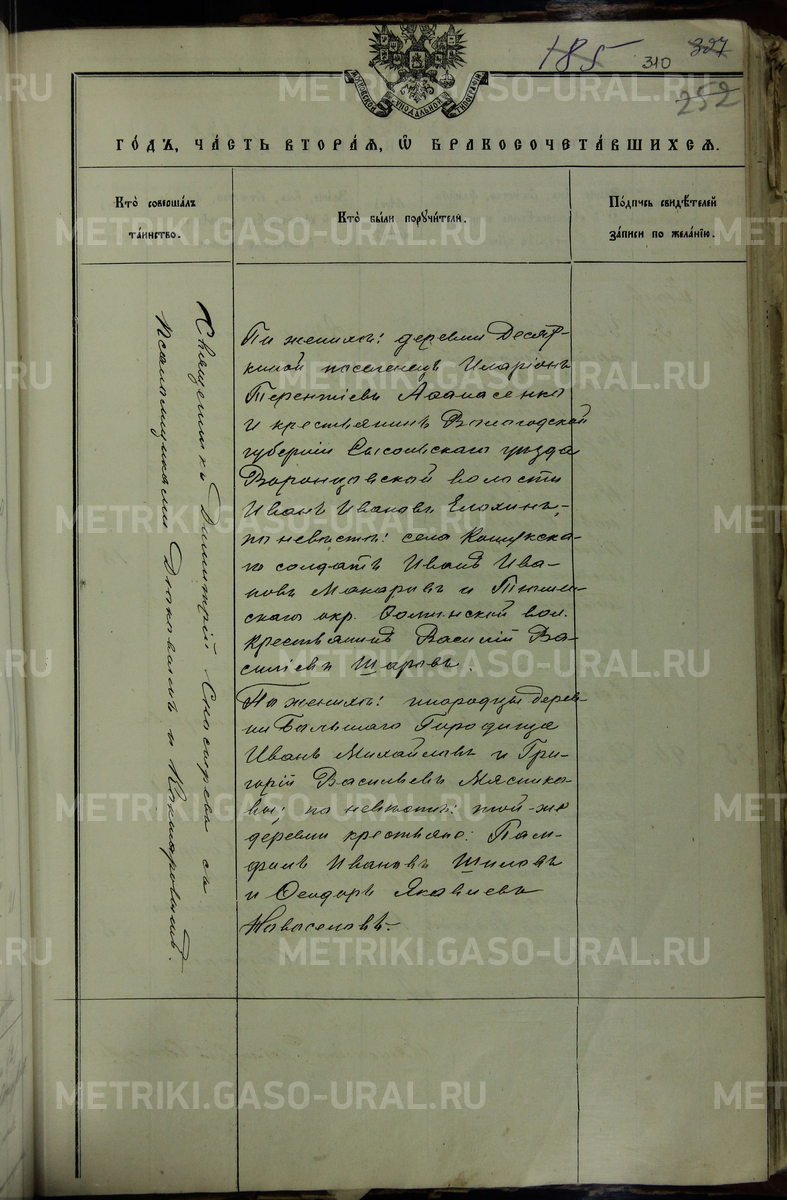 185
310
327
252
МОСКОВСКОЙ СѴНОДАЛЬНОЙ ТИПОГРАФІИ
ГО́ДЪ, ЧА́СТЬ ВТОРА́Я, Ѡ БРАКОСОЧЕТА́ВШИХСЯ.
Кто̀ соверша́лъ
та́инство.
Кто̀ бы́ли порꙋчи́тели.
По́дпись свидѣ́телей
за́писи по жела́нїю.
Священникъ Димитрій Сносырева съ
Псаломщиками Дюковымъ и Кокшаровымъ.
По женихѣ: деревни Десят-
киной поселенецъ Иларіонъ
Терентіевъ Афанасенко
и крестьянинъ Вологодской
губерніи Сысольскаго уѣзда
Воронцовской волости
Иванъ Ивановъ Елохинъ,-
по невѣстѣ: села Кошукска-
го солдатъ Иванъ Ива-
новъ Макаровъ и Тюмен-
скаго окр. Фоминской вол.
крестьянинъ Василій Ва-
силіевъ Шаровъ.
По женихѣ: инородцы дерев-
ни Большаго Городища
Иванъ Михайловъ и Гри-
горій Васильевъ Мясник-
вы; по невѣстѣ: той-же
деревни крестьяне: Пам-
филъ Ивановъ Шиловъ
и Ѳеодоръ Яковлевъ
Новоселовъ.-
METRIKI.GASO-URAL.RU